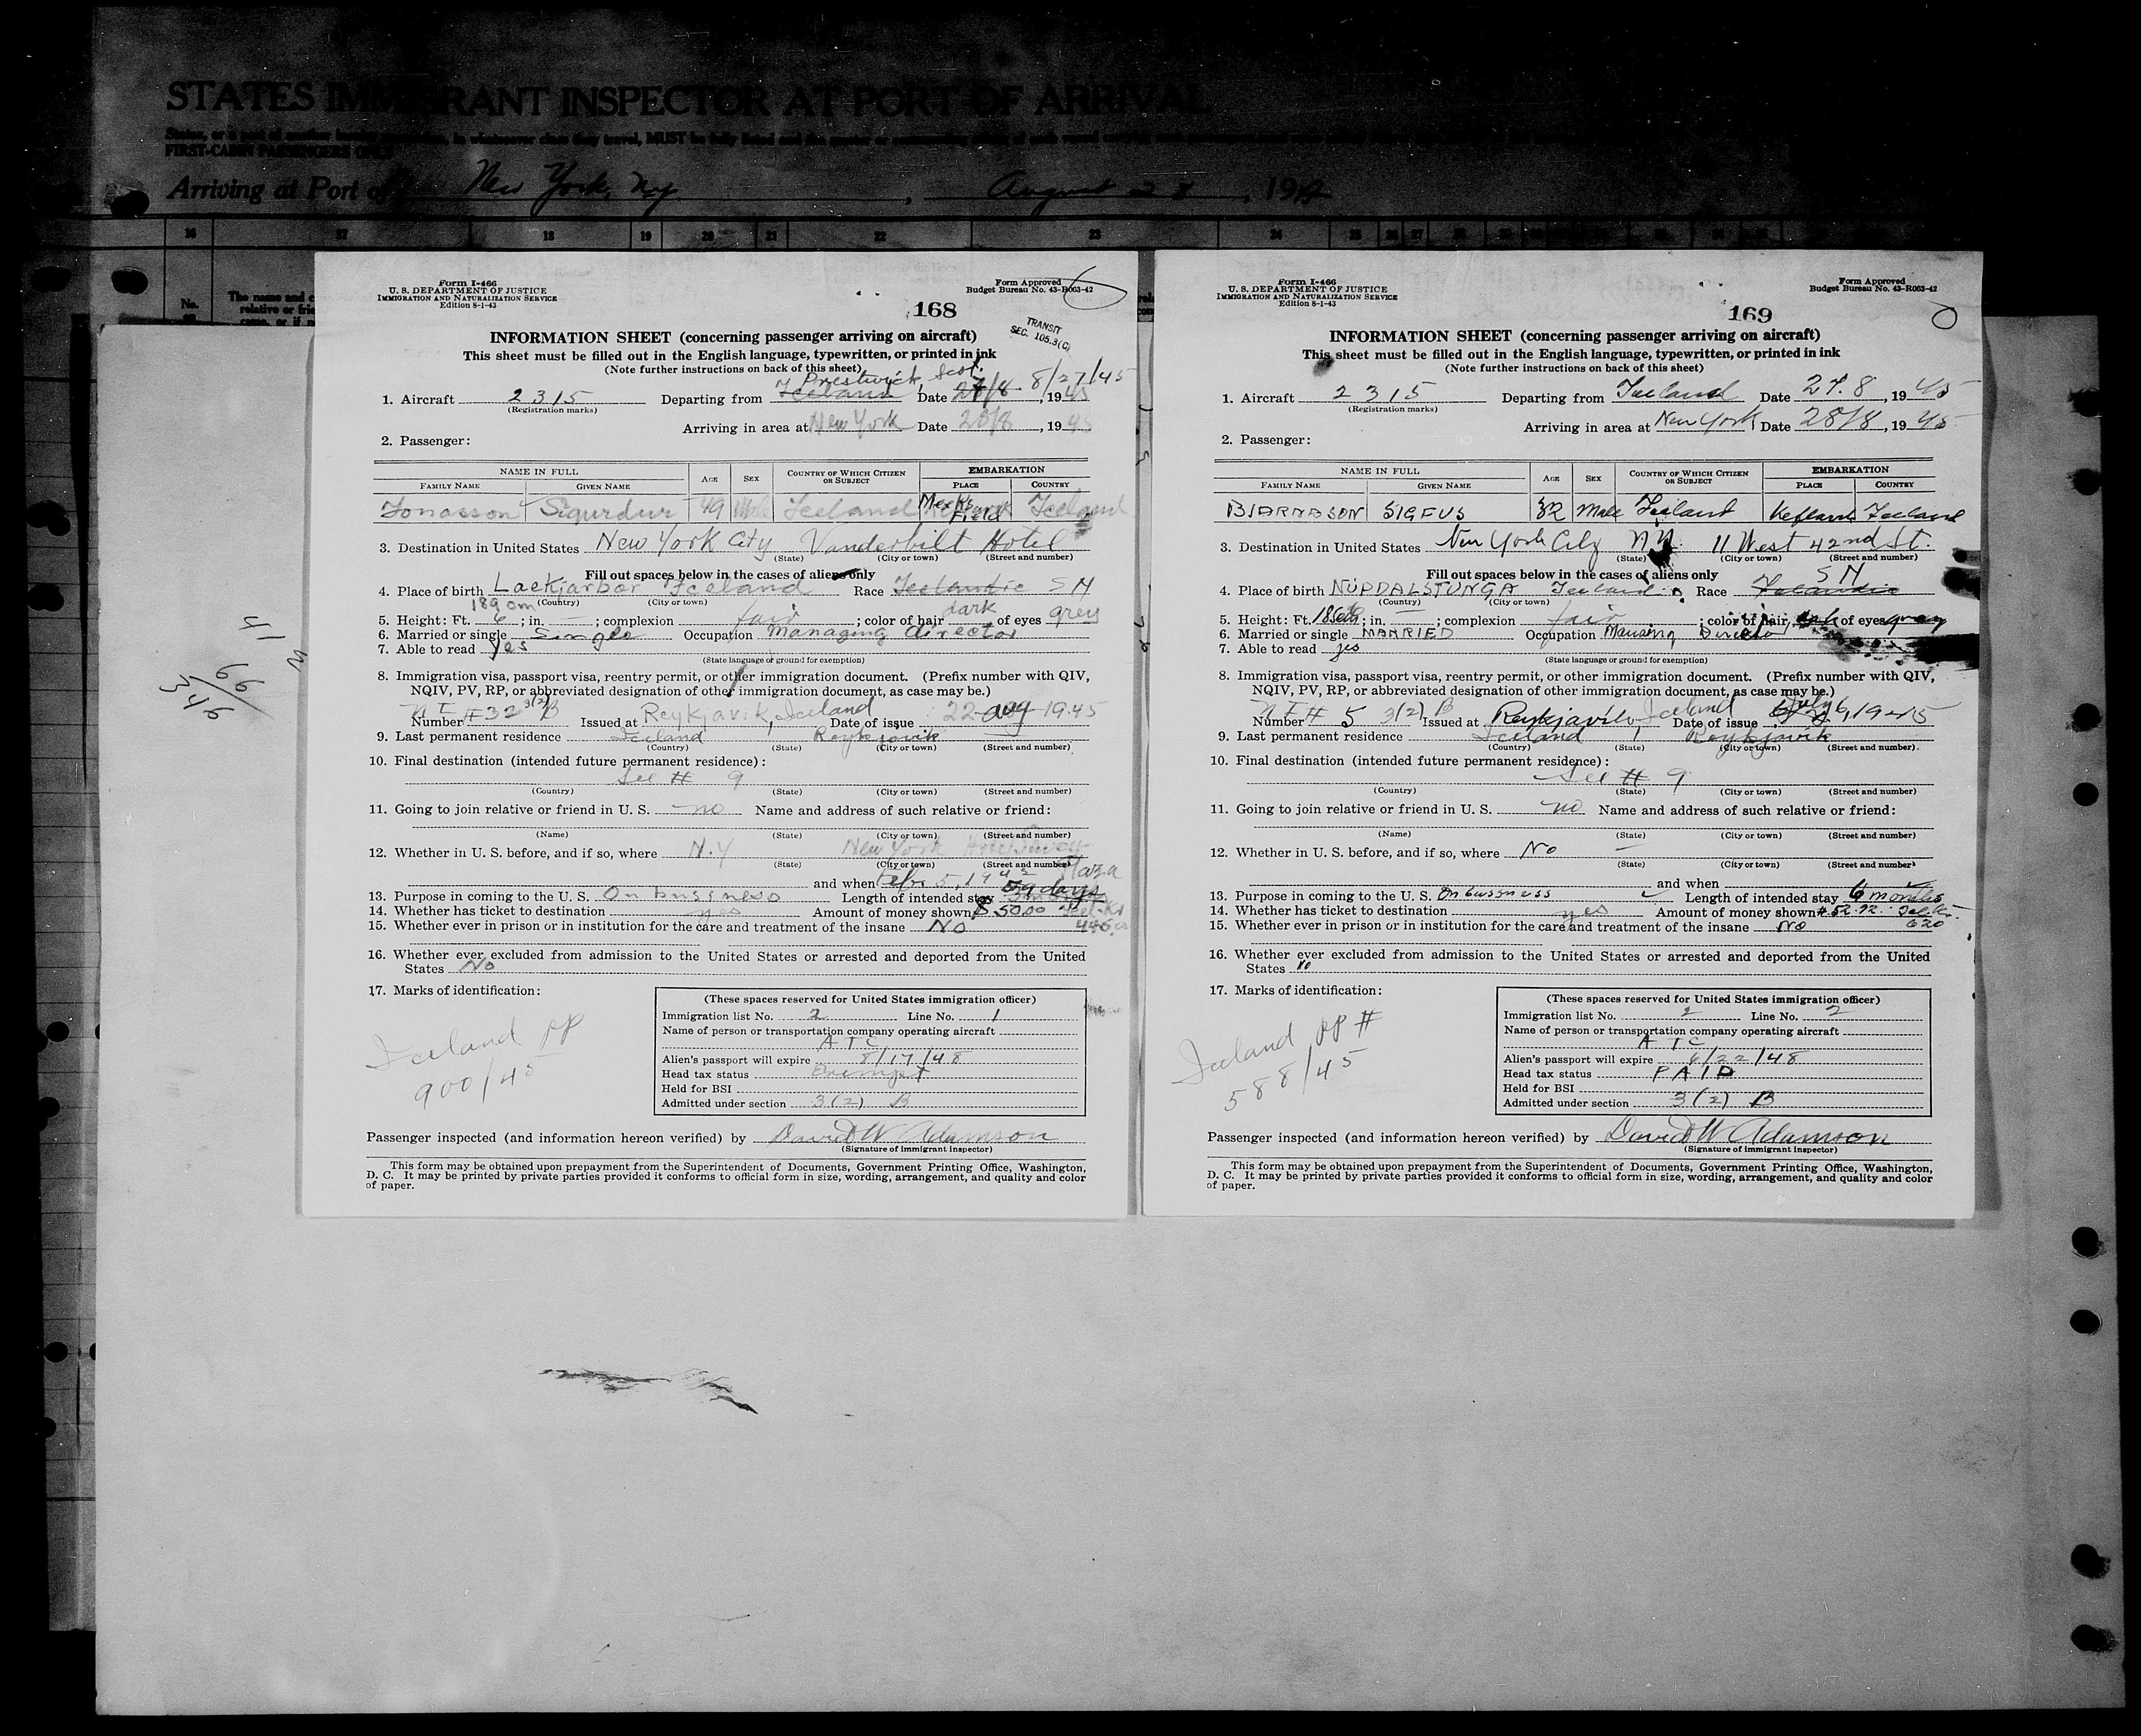 STATES IMMIGRANT INSPECTOR AT PORT OF ARRIVAL
FIRST-CABIN PASSENGERS ONLY
Arriving at Port of New York, NY, August 28, 19
16 17 18 19 20 21 22 23 24
No.
Form I-466
U. S. DEPARTMENT OF JUSTICE
IMMIGRATION AND NATURALIZATION SERVICE
Edition 8-1-43
Form Approved
Budget Bureau No. 43-R063-42
168
TRANSIT
SEC. 105.3(C)
INFORMATION SHEET (concerning passenger arriving on aircraft)
This sheet must be filled out in the English language, typewritten, or printed in ink
(Note further instructions on back of this sheet)
Prestwick, Scot. 8/27/45
1. Aircraft 2315 Departing from Iceland Date 27/8, 1945
(Registration marks)
Arriving in area at New York Date 28/8, 1945
2. Passenger:
NAME IN FULL AGE SEX COUNTRY OF WHICH CITIZEN OR SUBJECT EMBARKATION
FAMILY NAME GIVEN NAME PLACE COUNTRY
Jonasson Sigurdur 49 Male Iceland Meeks Field Iceland
3. Destination in United States New York City Vanderbilt Hotel
(State) (City or town) (Street and number)
Fill out spaces below in the cases of aliens only
4. Place of birth Laekjarbor Iceland Race Icelandic SN
(Country) (City or town)
189 cm dark
5. Height: Ft. 6; in. —; complexion fair; color of hair of eyes grey
6. Married or single Single Occupation Managing director
7. Able to read yes
(State language or ground for exemption)
8. Immigration visa, passport visa, reentry permit, or other immigration document. (Prefix number with QIV,
NQIV, PV, RP, or abbreviated designation of other immigration document, as case may be.)
Number NI #32 3(2)B Issued at Reykjavik, Iceland Date of issue 22 aug 1945
9. Last permanent residence Iceland Reykjavik
(Country) (State) (City or town) (Street and number)
10. Final destination (intended future permanent residence):
See # 9
(Country) (State) (City or town) (Street and number)
11. Going to join relative or friend in U. S. no Name and address of such relative or friend:
(Name) (State) (City or town) (Street and number)
12. Whether in U. S. before, and if so, where N.Y New York Hotel Savoy
(State) (City or town) (Street and number)
Plaza
and when Febr 5, 1942
13. Purpose in coming to the U. S. On bussiness Length of intended stay 59 days
14. Whether has ticket to destination yes Amount of money shown $50.00
15. Whether ever in prison or in institution for the care and treatment of the insane No
16. Whether ever excluded from admission to the United States or arrested and deported from the United
States No
17. Marks of identification:
Iceland PP
900/45
(These spaces reserved for United States immigration officer)
Immigration list No. 2 Line No. 1
Name of person or transportation company operating aircraft
ATC
Alien's passport will expire 8/17/48
Head tax status Exempt
Held for BSI
Admitted under section 3(2) B
Passenger inspected (and information hereon verified) by David W Adamson
(Signature of immigrant inspector)
This form may be obtained upon prepayment from the Superintendent of Documents, Government Printing Office, Washington,
D. C. It may be printed by private parties provided it conforms to official form in size, wording, arrangement, and quality and color
of paper.
Form I-466
U. S. DEPARTMENT OF JUSTICE
IMMIGRATION AND NATURALIZATION SERVICE
Edition 8-1-43
Form Approved
Budget Bureau No. 43-R063-42
169
INFORMATION SHEET (concerning passenger arriving on aircraft)
This sheet must be filled out in the English language, typewritten, or printed in ink
(Note further instructions on back of this sheet)
1. Aircraft 2315 Departing from Iceland Date 27.8, 1945
(Registration marks)
Arriving in area at New York Date 28/8, 1945
2. Passenger:
NAME IN FULL AGE SEX COUNTRY OF WHICH CITIZEN OR SUBJECT EMBARKATION
FAMILY NAME GIVEN NAME PLACE COUNTRY
BJARNASON SIGFUS 32 Male Iceland Keflavik Iceland
3. Destination in United States New York City NY. 11 West 42nd St.
(State) (City or town) (Street and number)
Fill out spaces below in the cases of aliens only
SN
4. Place of birth NUPDALSTUNGA Iceland Race Icelandic
(Country) (City or town)
5. Height: Ft. 186cm; in. —; complexion fair; color of hair, dark of eyes gray
6. Married or single MARRIED Occupation Managing Director
7. Able to read yes
(State language or ground for exemption)
8. Immigration visa, passport visa, reentry permit, or other immigration document. (Prefix number with QIV,
NQIV, PV, RP, or abbreviated designation of other immigration document, as case may be.)
Number NI # 5 3(2) B Issued at Reykjavik Iceland Date of issue July 6, 1945
9. Last permanent residence Iceland Reykjavik
(Country) (State) (City or town) (Street and number)
10. Final destination (intended future permanent residence):
See # 9
(Country) (State) (City or town) (Street and number)
11. Going to join relative or friend in U. S. no Name and address of such relative or friend:
(Name) (State) (City or town) (Street and number)
12. Whether in U. S. before, and if so, where No —
(State) (City or town) (Street and number)
and when
13. Purpose in coming to the U. S. On bussness Length of intended stay 6 months
14. Whether has ticket to destination yes Amount of money shown
15. Whether ever in prison or in institution for the care and treatment of the insane No 620
16. Whether ever excluded from admission to the United States or arrested and deported from the United
States No
17. Marks of identification:
Iceland PP #
588/45
(These spaces reserved for United States immigration officer)
Immigration list No. 2 Line No. 2
Name of person or transportation company operating aircraft
ATC
Alien's passport will expire 6/22/48
Head tax status PAID
Held for BSI
Admitted under section 3(2) B
Passenger inspected (and information hereon verified) by David W Adamson
(Signature of immigrant inspector)
This form may be obtained upon prepayment from the Superintendent of Documents, Government Printing Office, Washington,
D. C. It may be printed by private parties provided it conforms to official form in size, wording, arrangement, and quality and color
of paper.